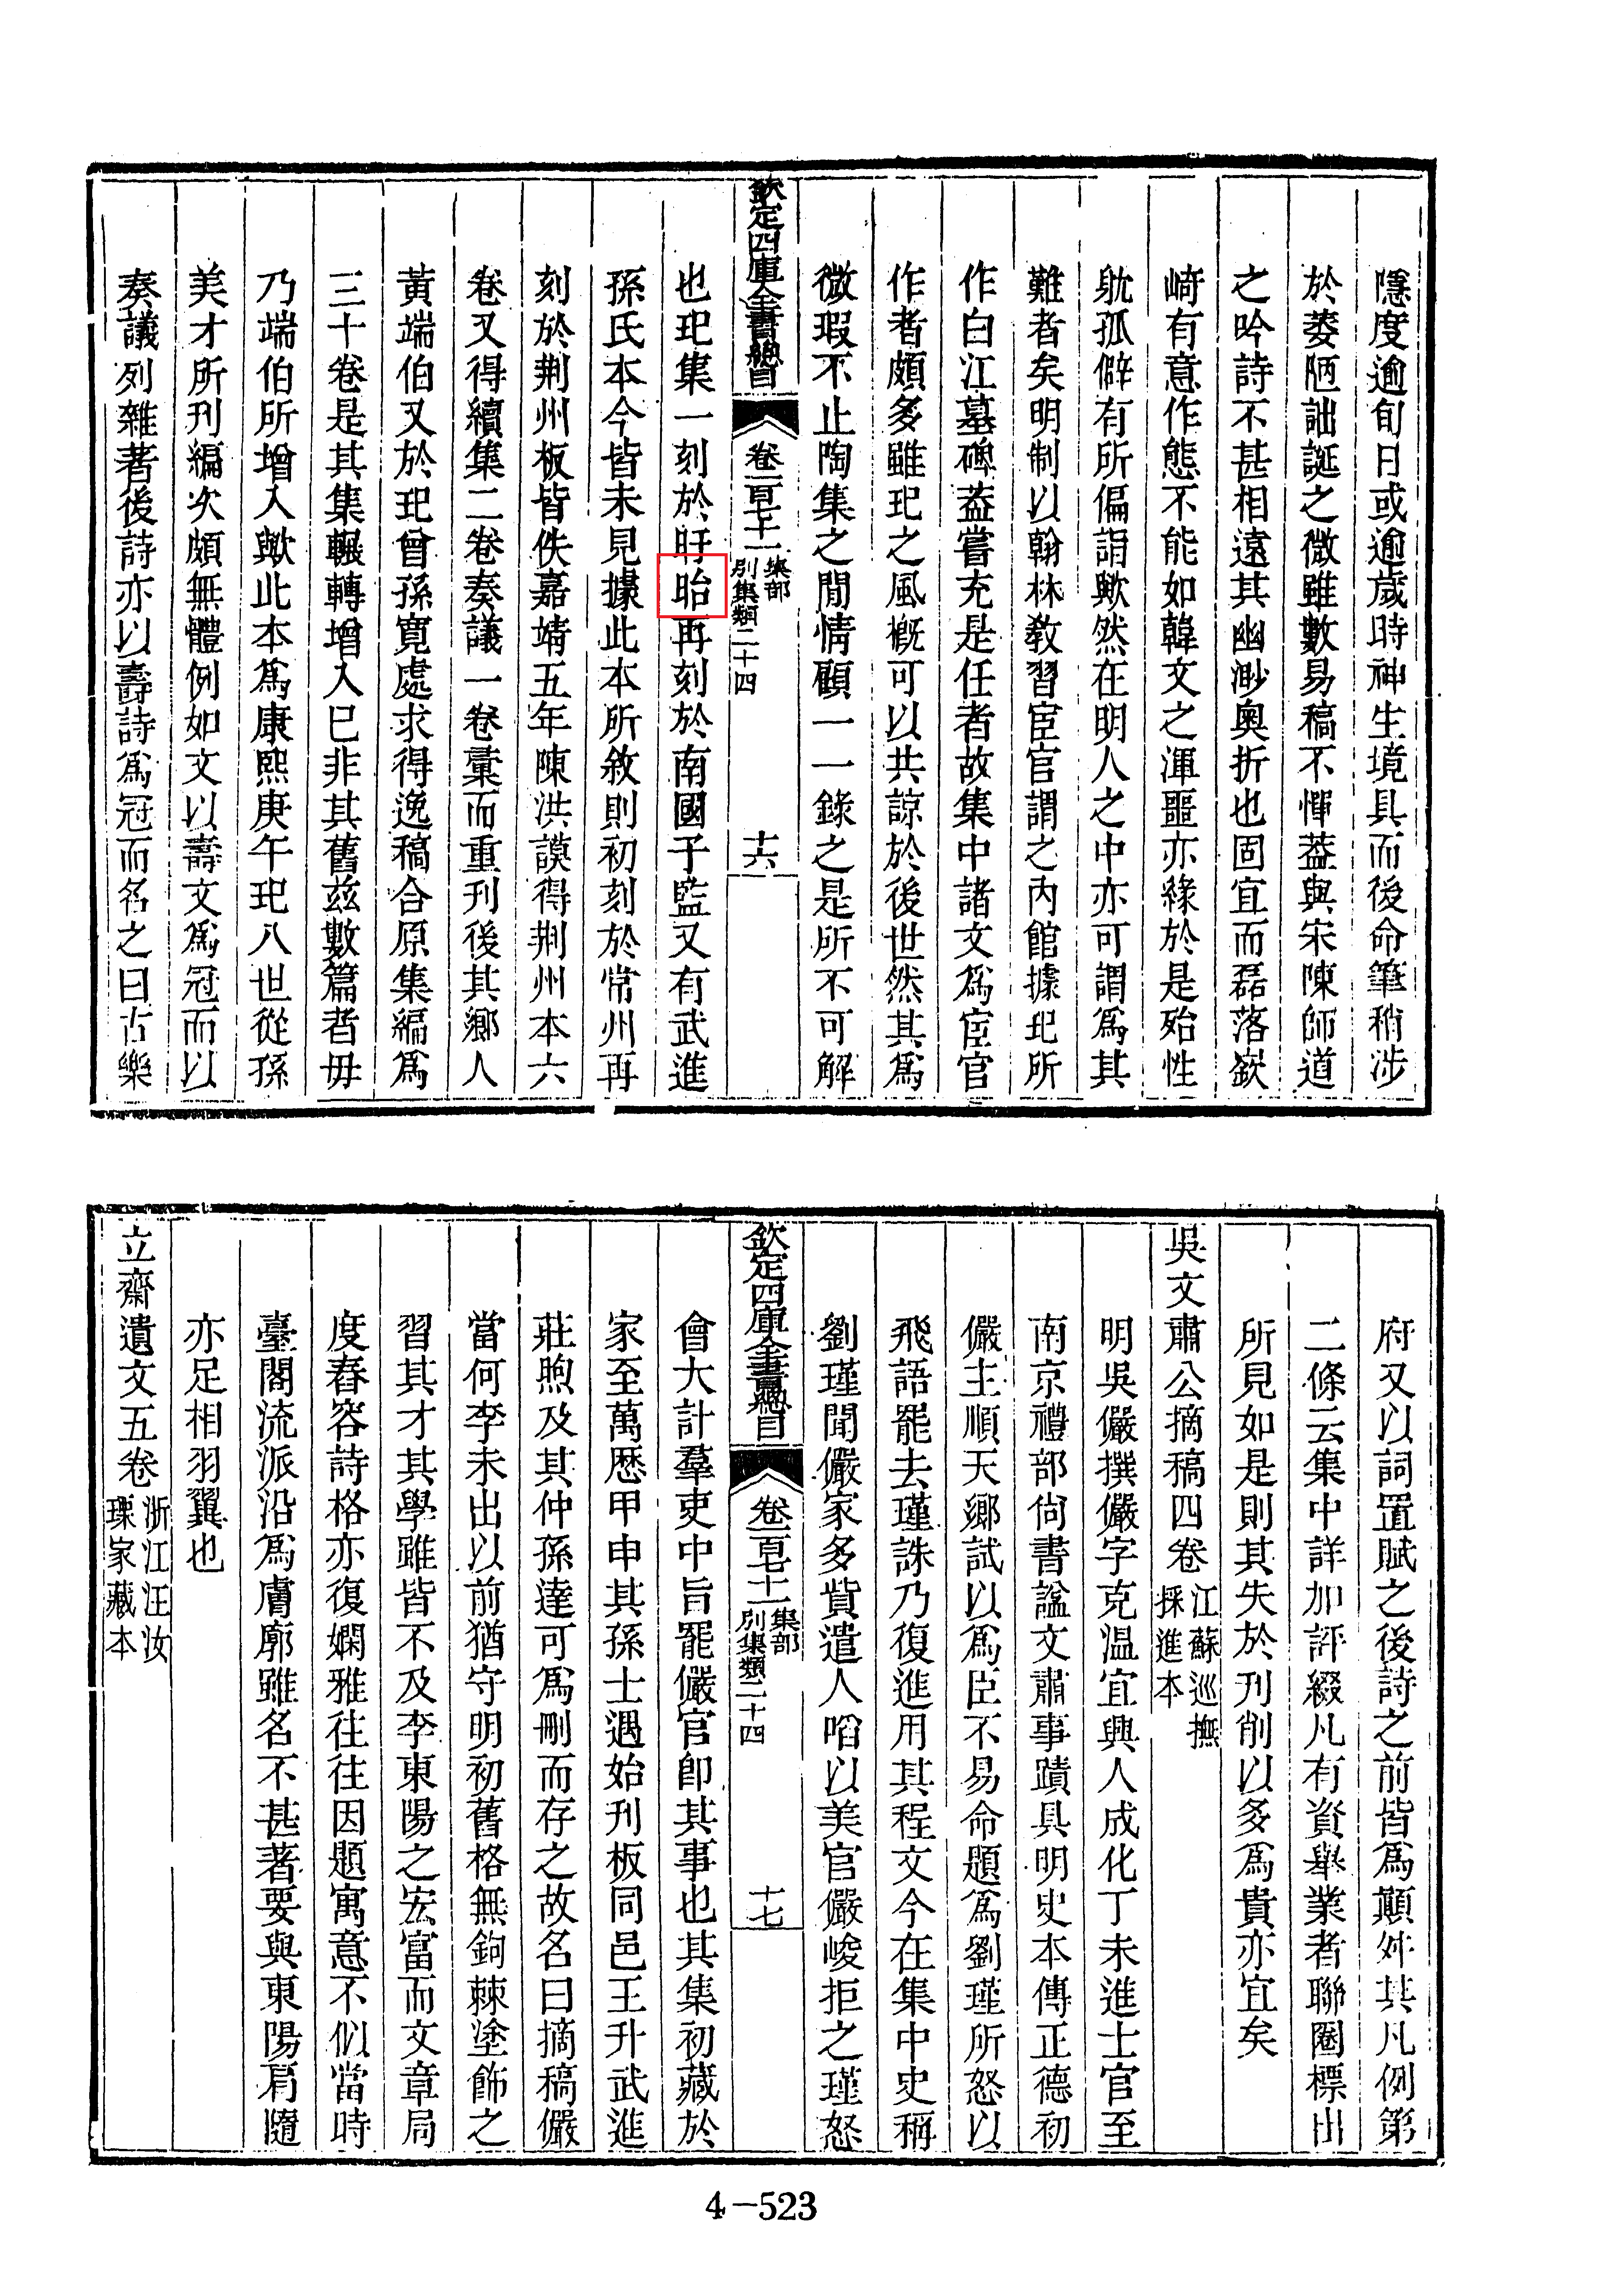 隱度逾旬日或逾歲時神生境具而後命筆稍涉
於萎陋詘誕之微雖數易稿不憚葢與宋陳師道
之吟詩不甚相遠其幽渺奧折也固宜而磊落嶔
﨑有意作態不能如韓文之渾噩亦緣於是殆性
躭孤僻有所偏詣歟然在明人之中亦可謂爲其
難者矣明制以翰林敎習宦官謂之內館據玘所
作白江墓碑葢嘗充是任者故集中諸文爲宦官
作者頗多雖玘之風槪可以共諒於後世然其爲
微瑕不止陶集之閒情顧一一錄之是所不可解
欽定四庫全書總目 卷一百七十一 集部 別集類二十四 十六
也玘集一刻於旴眙再刻於南國子監又有武進
孫氏本今皆未見據此本所敘則初刻於常州再
刻於荆州板皆佚嘉靖五年陳洪謨得荆州本六
卷又得續集二卷奏議一卷彙而重刊後其鄉人
黃端伯又於玘曾孫寬處求得逸稿合原集編爲
三十卷是其集輾轉增入已非其舊兹數篇者毋
乃端伯所增入歟此本爲康熙庚午玘八世從孫
美才所刊編次頗無體例如文以壽文爲冠而以
奏議列雜著後詩亦以壽詩爲冠而名之曰古樂
府又以詞置賦之後詩之前皆爲顚舛其凡例第
二條云集中詳加評綴凡有資舉業者聯圈標出
所見如是則其失於刋削以多爲貴亦宜矣
吳文肅公摘稿四卷 江蘇巡撫採進本
明吳儼撰儼字克溫宜興人成化丁未進士官至
南京禮部尙書諡文肅事蹟具明史本傳正德初
儼主順天鄉試以爲臣不易命題爲劉瑾所怒以
飛語罷去瑾誅乃復進用其程文今在集中史稱
劉瑾聞儼家多貲遣人啗以美官儼峻拒之瑾怒
欽定四庫全書總目 卷一百七十一 集部 別集類二十四 十七
會大計羣吏中旨罷儼官卽其事也其集初藏於
家至萬歷甲申其孫士遇始刊板同邑王升武進
莊煦及其仲孫達可爲刪而存之故名曰摘稿儼
當何李未出以前猶守明初舊格無鉤棘塗飾之
習其才其學雖皆不及李東陽之宏富而文章局
度舂容詩格亦復嫻雅往往因題寓意不似當時
臺閣流派沿爲膚廓雖名不甚著要與東陽肩隨
亦足相羽翼也
立齋遺文五卷 浙江汪汝瑮家藏本
4-523